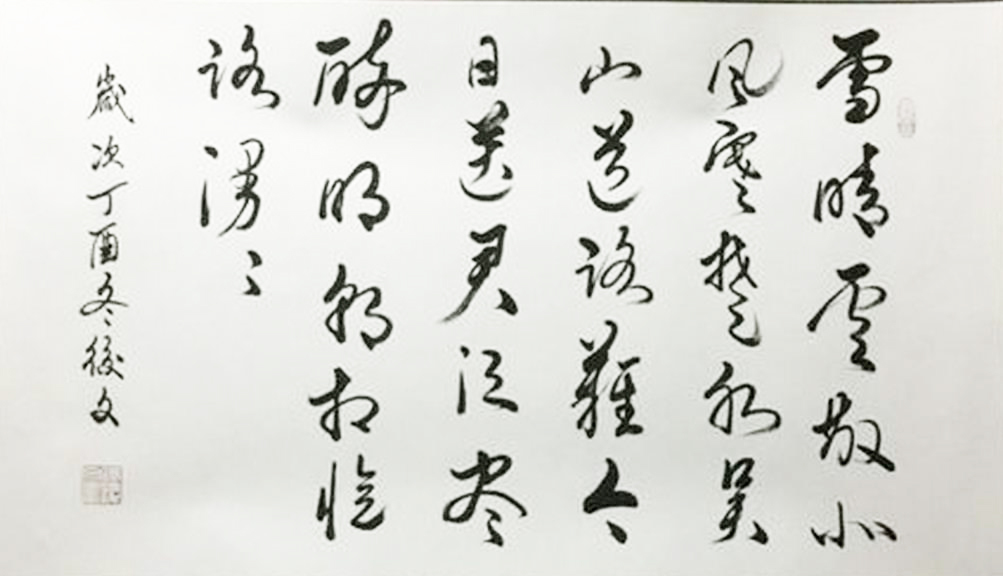 雪晴雲散北
風寒楚水吴
山道路難今
日送君須尽
醉明朝相憶
路漫〻
歲次丁酉冬後文